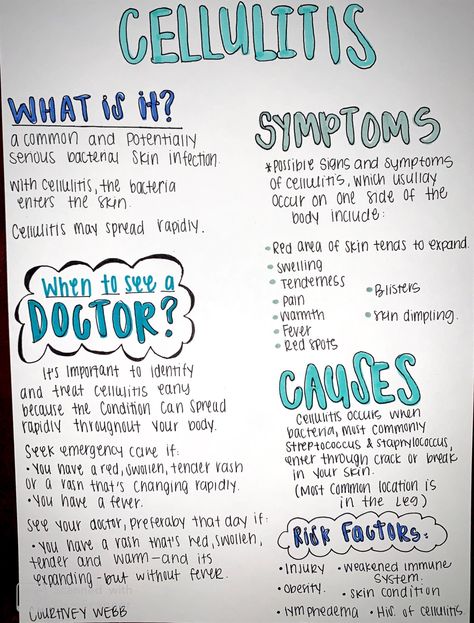 CELLULITIS
WHAT IS IT?
a common and potentially
serious bacterial skin infection.
with cellulitis, the bacteria
enters the skin.
Cellulitis may spread rapidly.
When to see a
DOCTOR?
It's important to identify
and treat cellulitis early
because the condition can spread
rapidly throughout your body.
Seek emergency care if:
• You have a red, swollen, tender rash
or a rash that's changing rapidly.
• You have a fever.
See your doctor, preferaby that day if:
• You have a rash that's red, swollen,
tender and warm—and its
expanding-but without fever.
COURTNEY WEBB
SYMPTOMS
*Possible signs and symptoms
of cellulitis, which usullay
occur on one side of the
body include:
• Red area of skin tends to expand.
• swelling
• Tenderness
• pain
• warmth
• Fever
• Red spots
• Blisters
• skin dimpling.
CAUSES
Cellulitis occurs when
bacteria, most commonly
streptococcus & staphylococcus,
enter through crack or break
in your skin.
(Most common location is
in the leg)
RISK FACTORS:
• Injury
• weakened immune
system.
• Obesity.
• skin condition
• lymphedema
• Hx. of cellulitis.